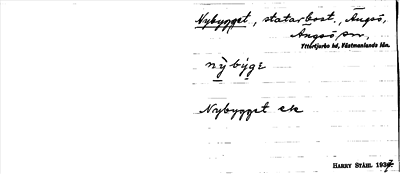 Nybygget, statarbost., Ängsö,
Ängsö sn,
Yttertjurbo hd, Västmanlands län.
nỳ býgε
Nybygget ek
HARRY STÅHL 1937.